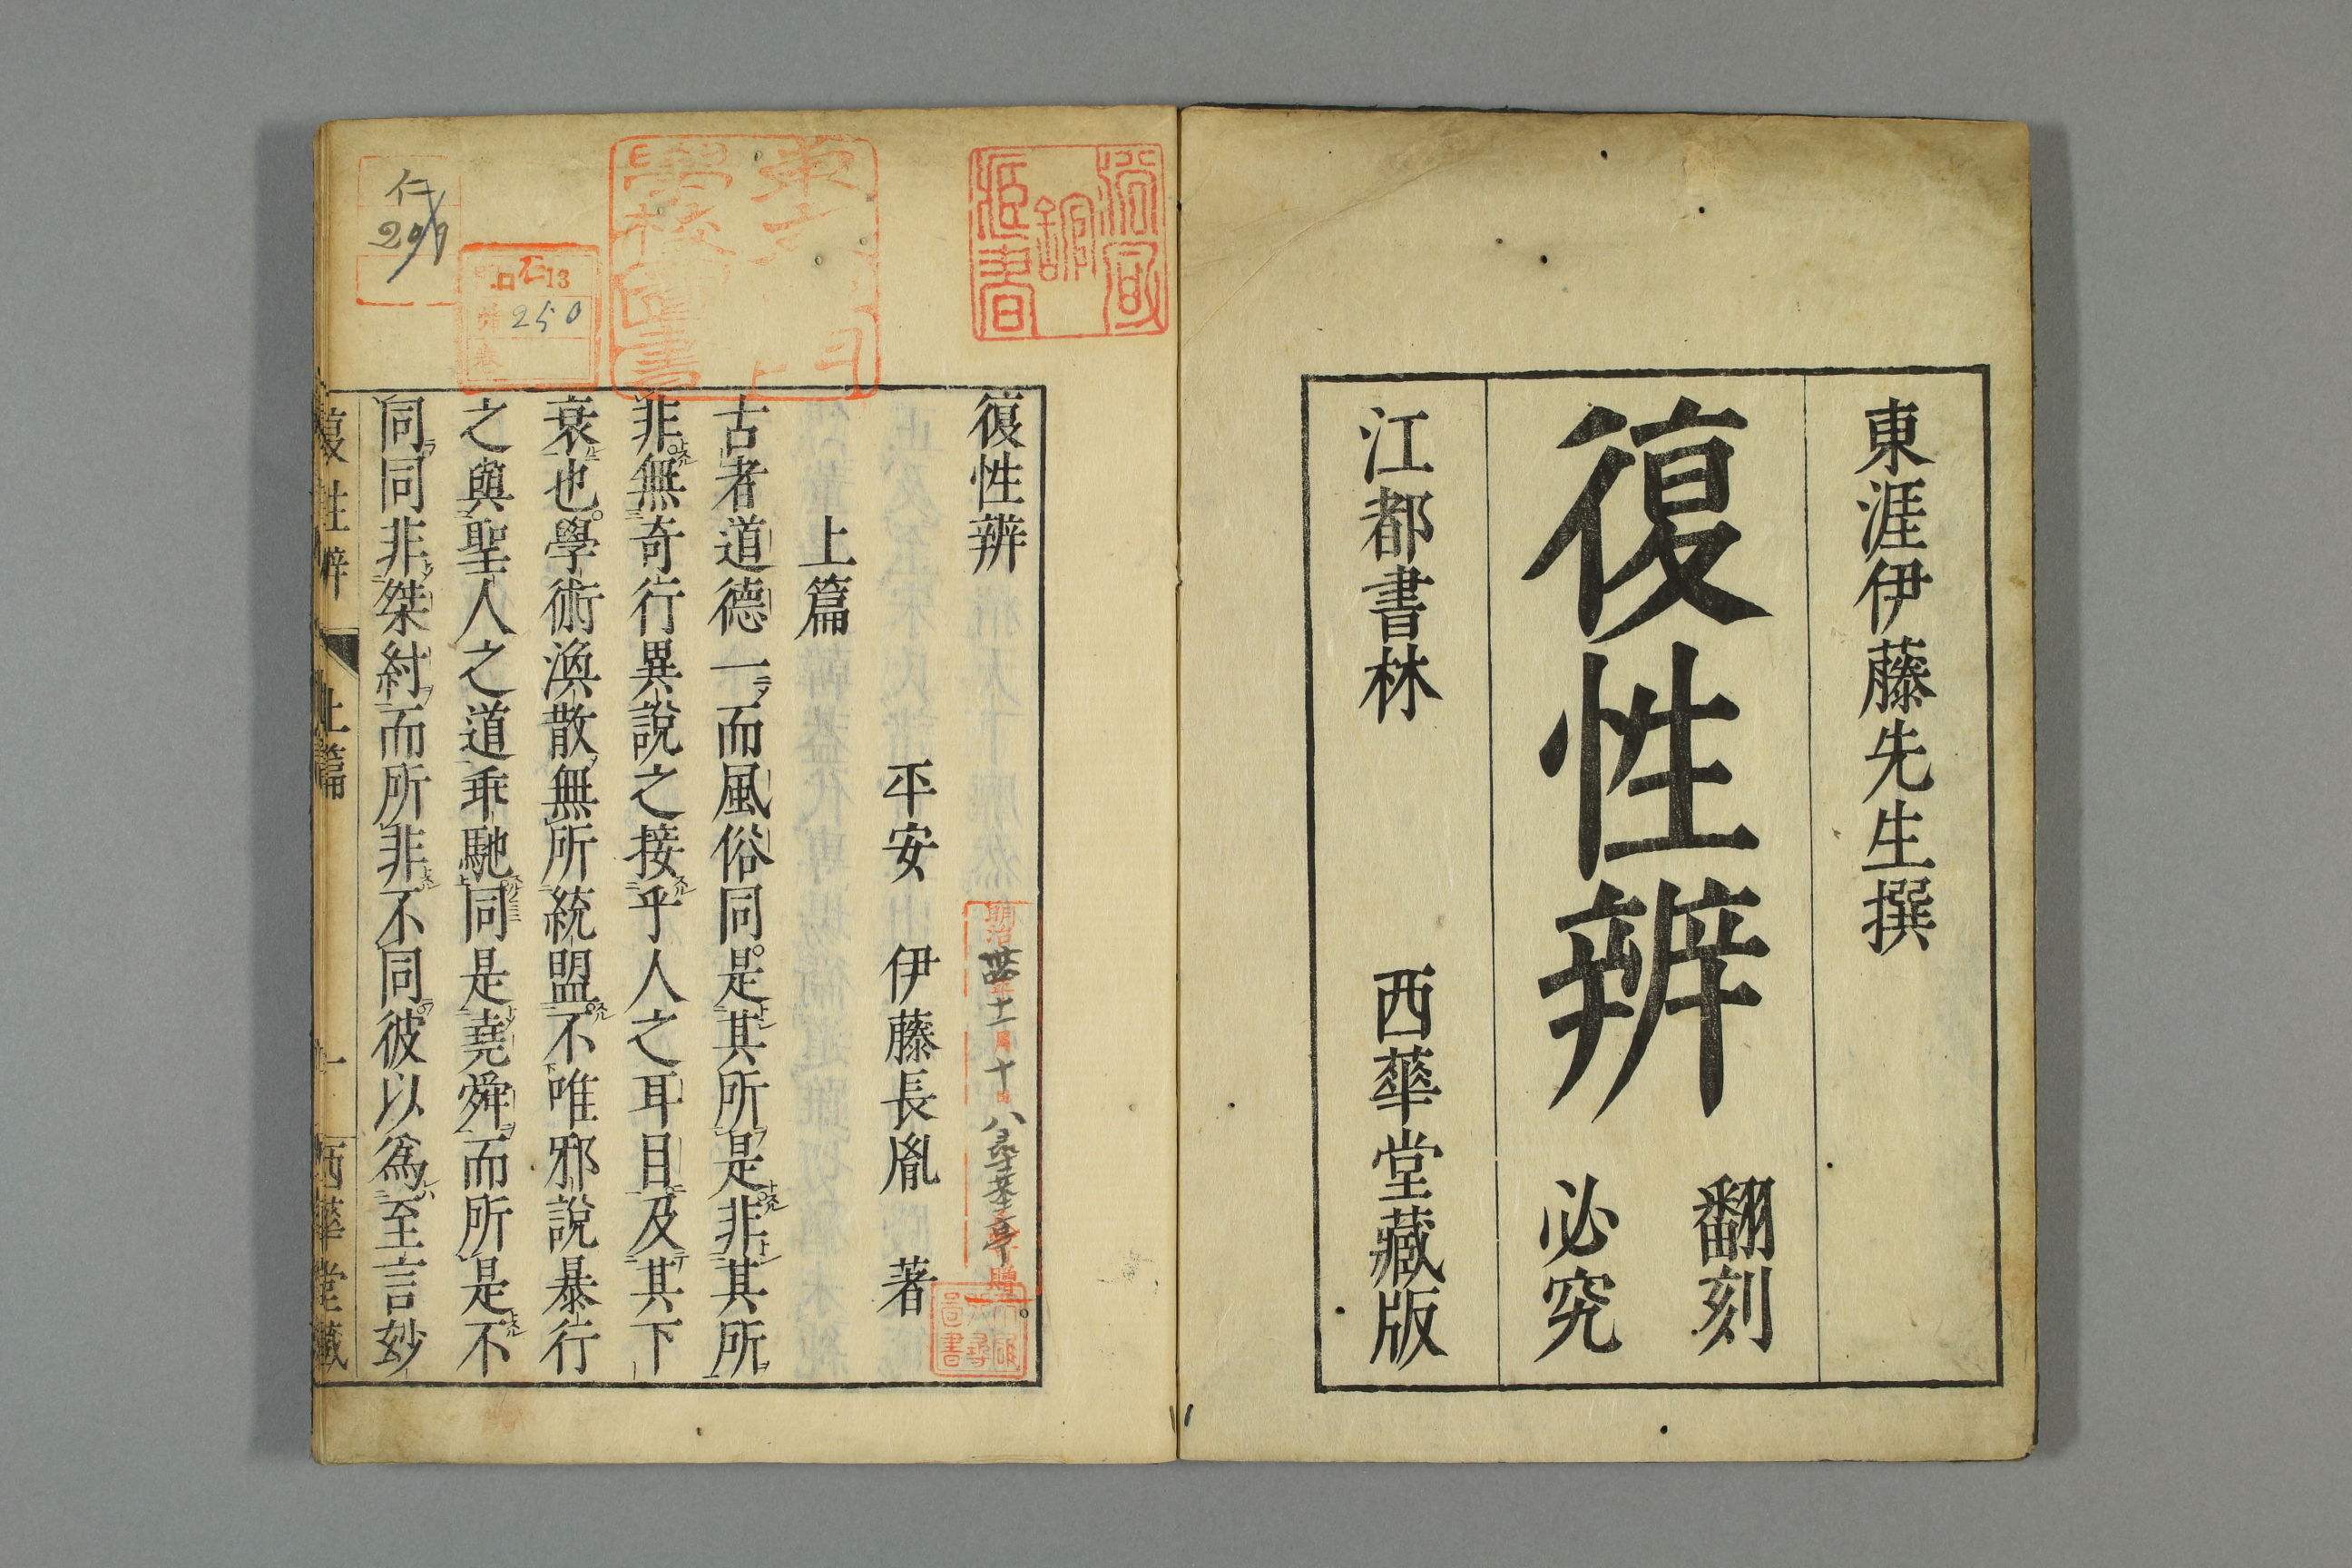 東涯伊藤先生撰
復性辨
翻刻
必究
江都書林 西華堂藏版
復性辨
平安 伊藤長胤 著
上篇
古者道德一而風俗同。是其所是非其所
非無奇行異說之接乎人之耳目及其下
衰也。學術渙散無所統盟不唯邪說暴行
之與聖人之道乖馳同是堯舜而所是不
同同非桀紂而所非不同彼以爲至言玅
復性辨 上篇 一 西華堂藏
仁
口仁13
250
學校圖書
藏書
明治 年十一月十日
贈
圖書